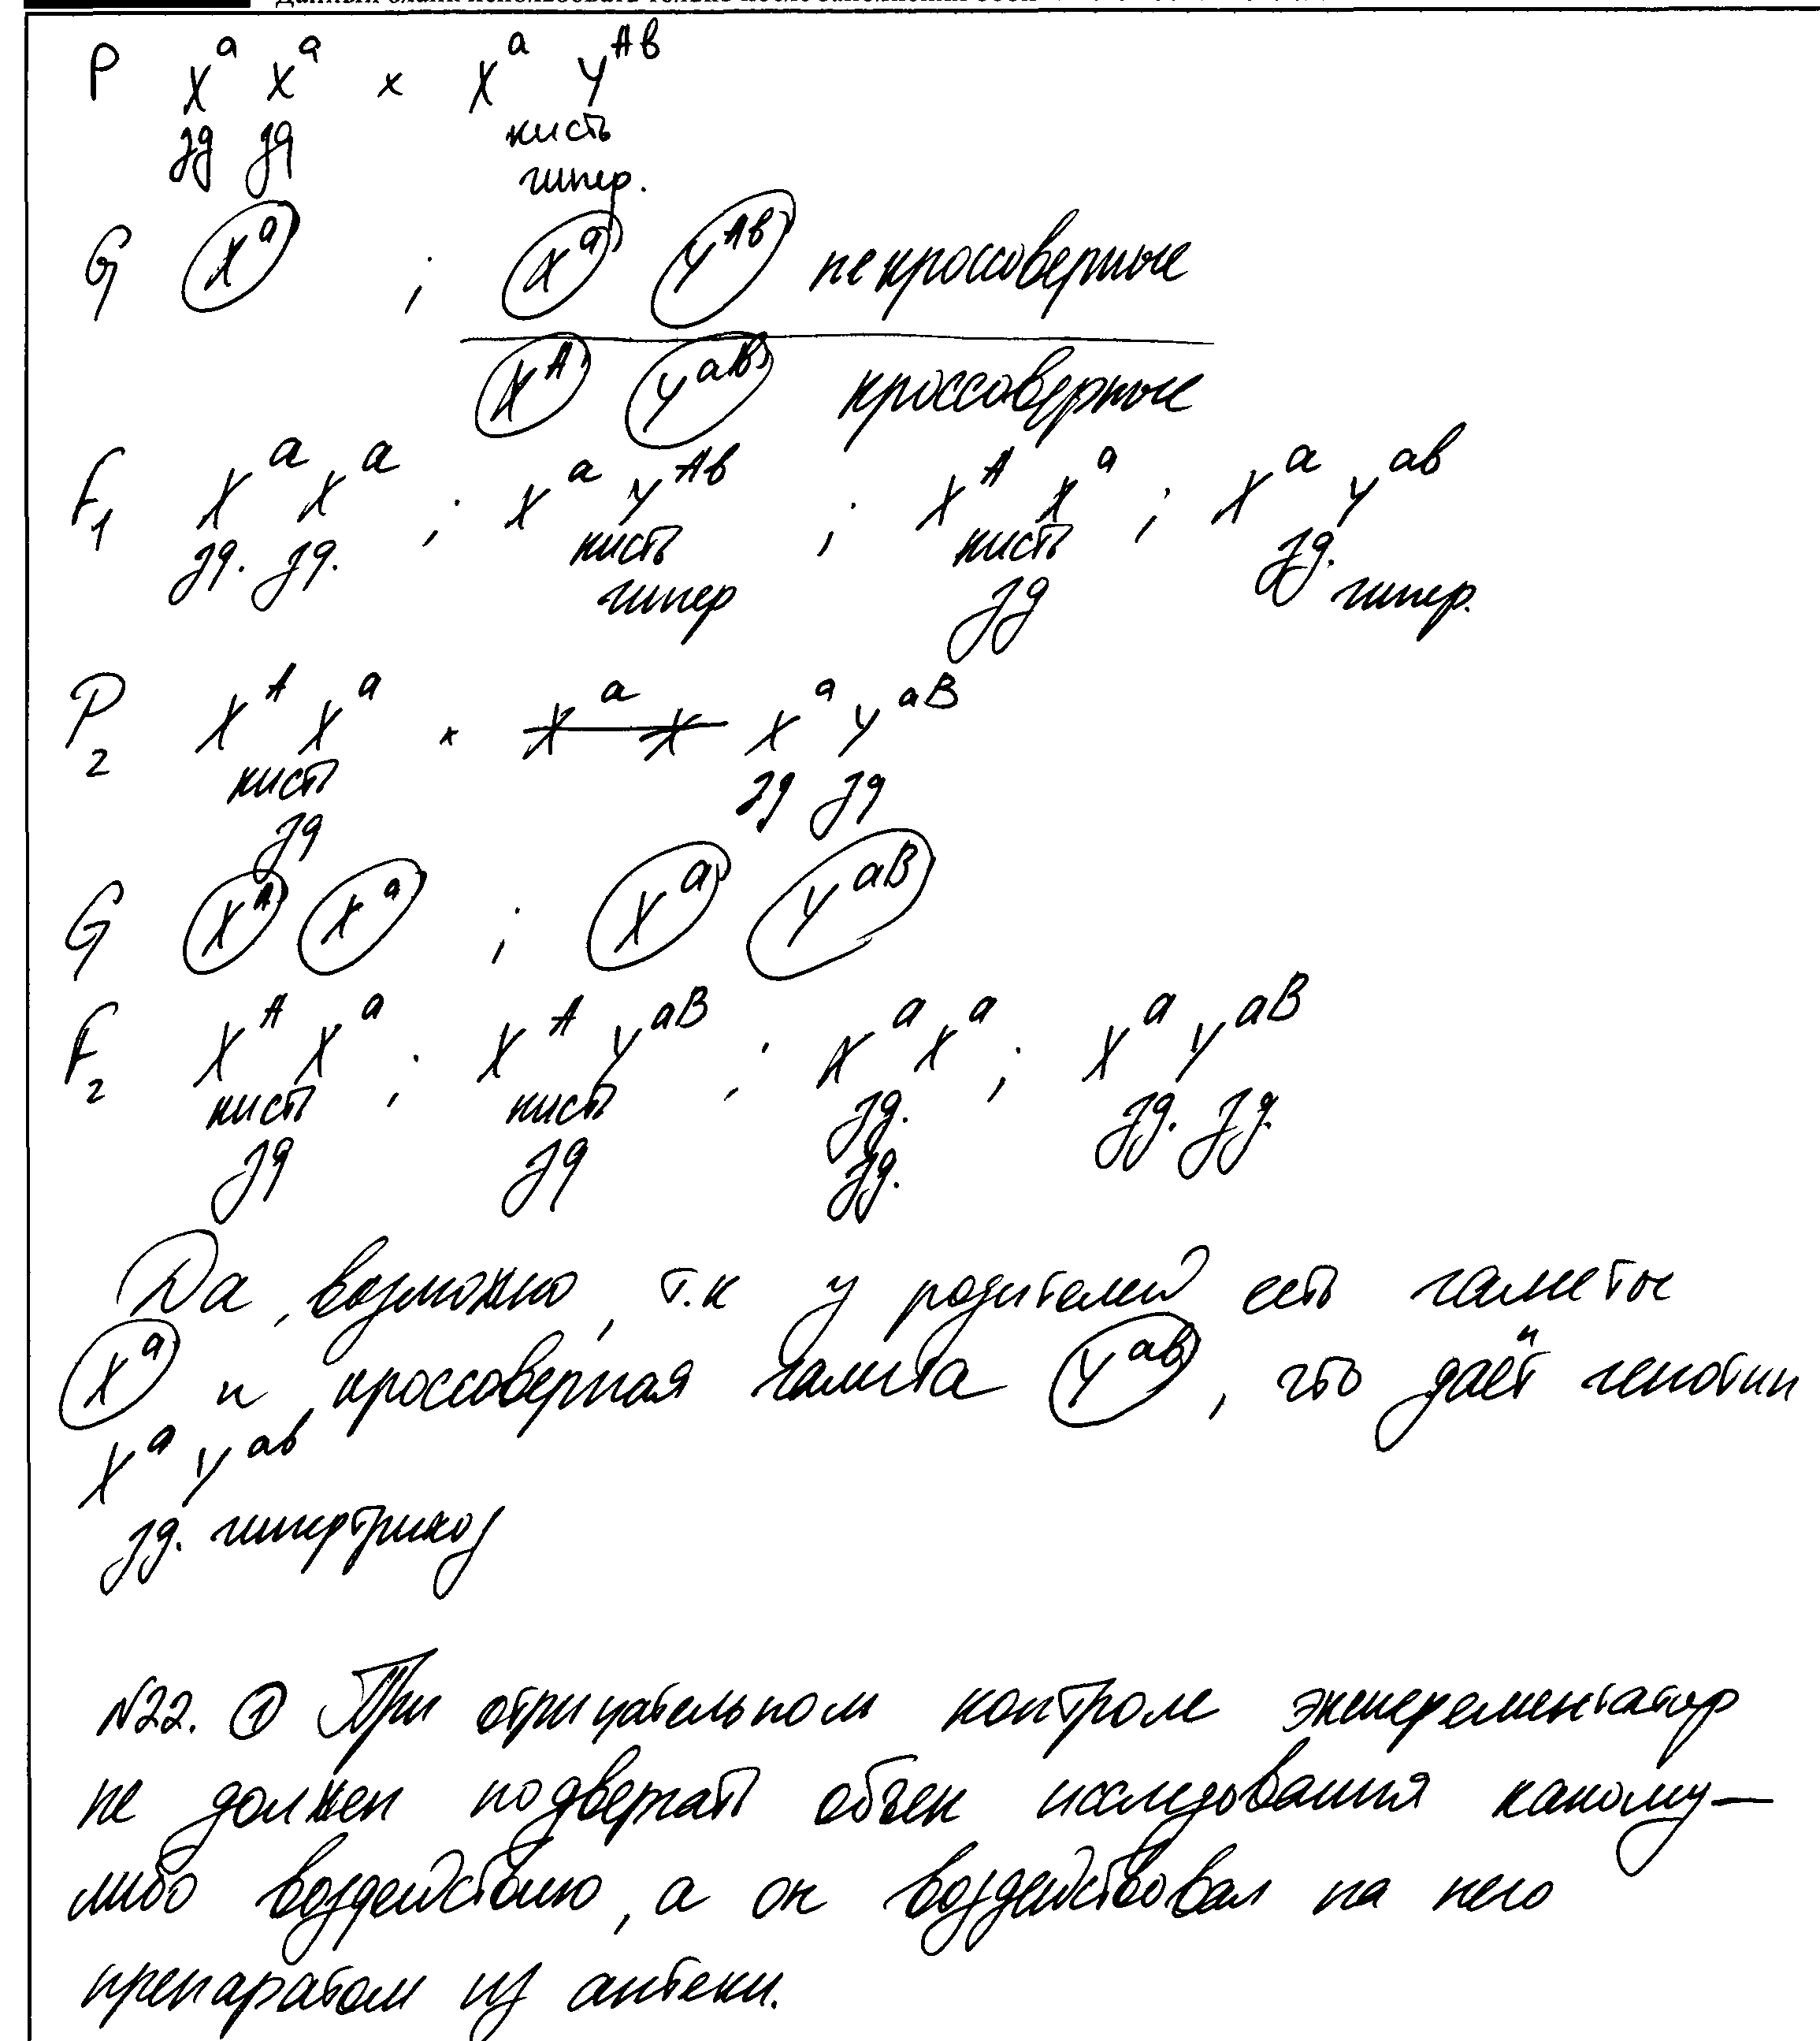 P X^a X^a × X^a Y^Aв
зд зд кисть
гипер.
G X^a ; X^a Y^Aв некроссоверные
X^A Y^aв кроссоверные
F₁ X^a X^a ; X^a Y^Aв ; X^A X^a ; X^a Y^aв
зд. зд. кисть кисть зд.
гипер зд гипер.
P₂ X^A X^a × X^a X X^a Y^aB
кисть зд зд
зд
G X^A X^a ; X^a Y^aB
F₂ X^A X^a ; X^A Y^aB ; X^a X^a ; X^a Y^aB
кисть кисть зд. зд. зд.
зд зд зд.
Да, возможно, т.к у родителей есть гаметы
X^a и кроссоверная гамета Y^aв, что даёт генотип
X^a Y^aв
зд. гипертрихоз
N22. ① При отрицательном контроле эксперементатор
не должен подвергать объек исследования какому-
либо воздействию, а он воздействовал на него
препаратом из аптеки.